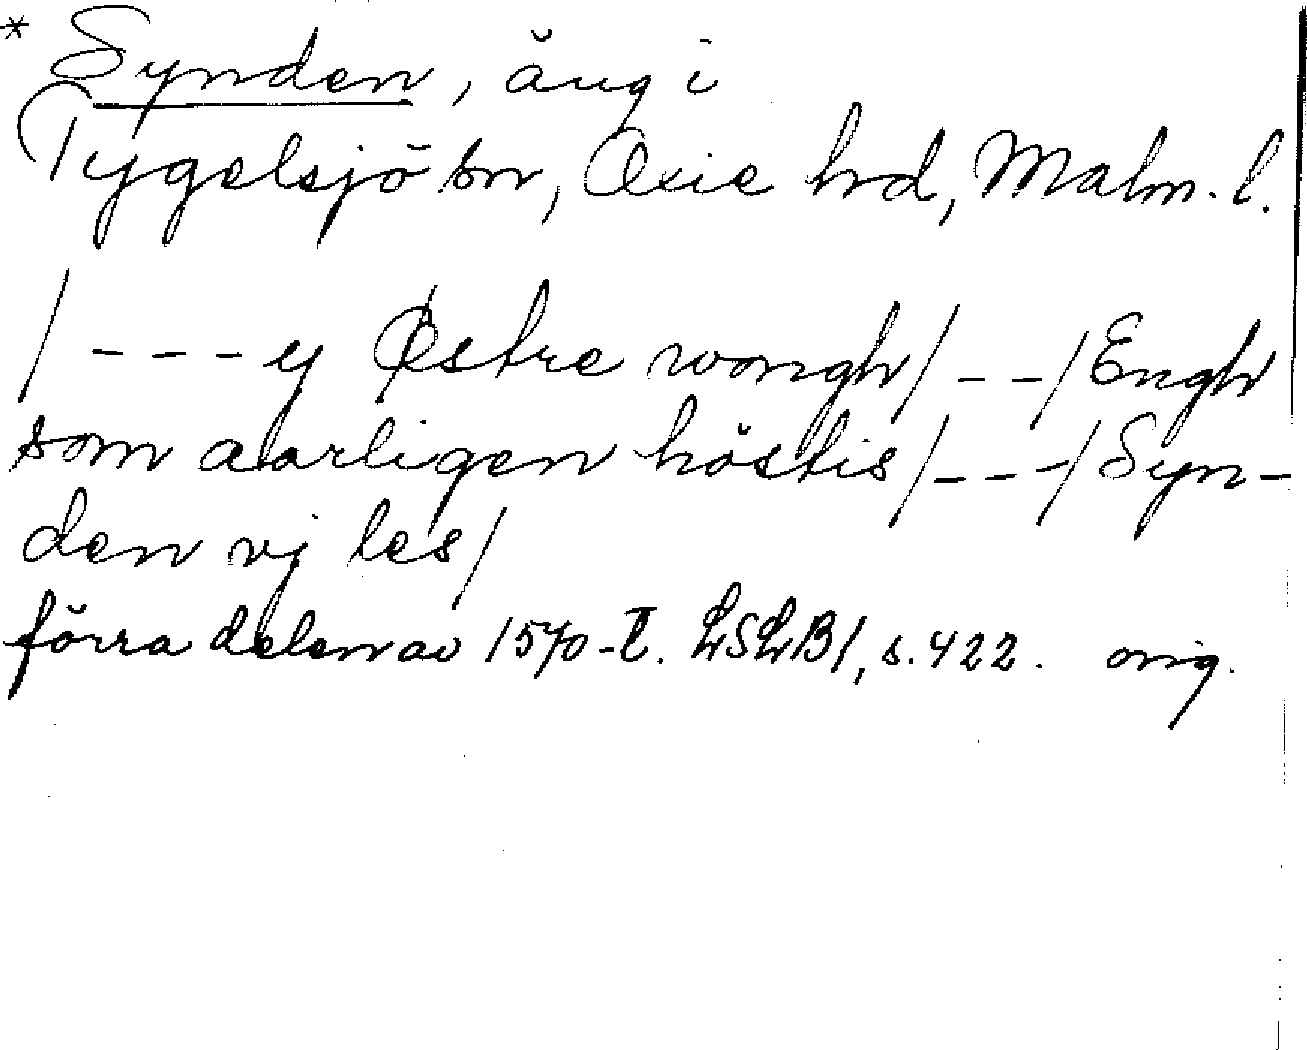 * Synden, äng i
Tygelsjö sn, Oxie hrd, Malm. l.
/ - - - y Østre wongh / - - / Engh
som aarligen höstis / - - - / Syn-
den vj les /
förra delen av 1570-t. LSLB1, s. 422. orig.